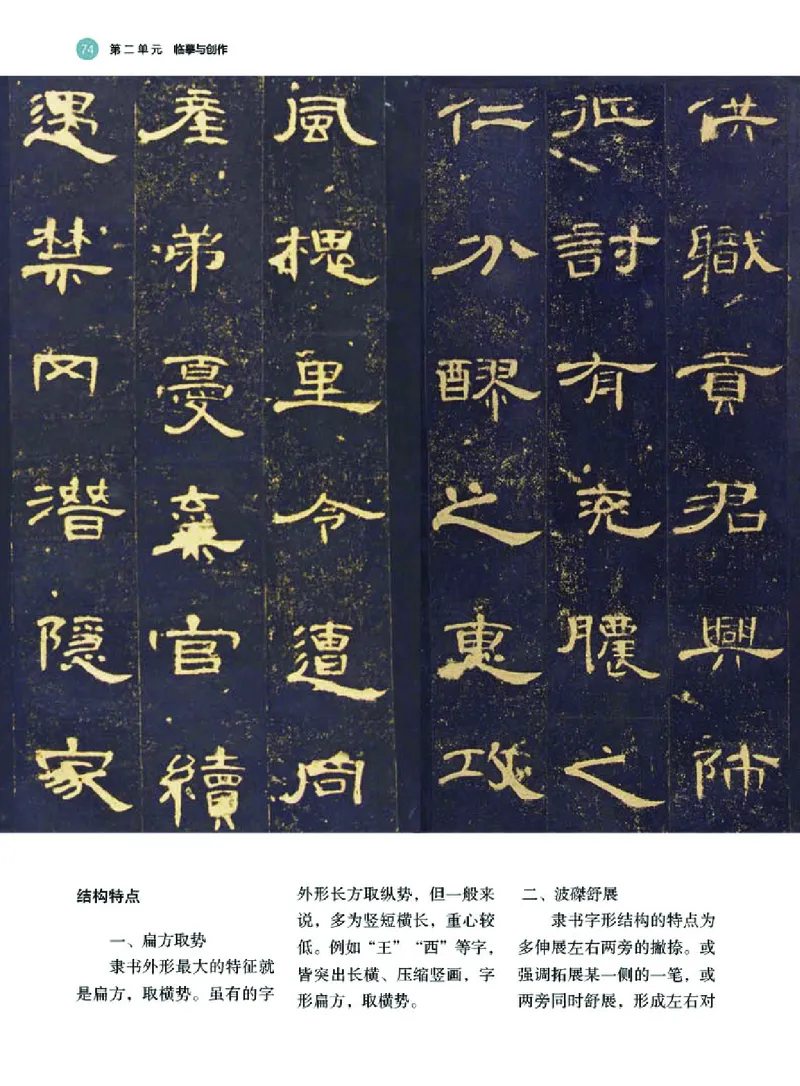 74 第二单元 临摹与创作
供職貢君興師
征討有兖膿之
仁分醪之惠攻
風槐里令遭同
産弟憂棄官續
遇禁网潛隱家
结构特点
一、扁方取势
隶书外形最大的特征就
是扁方，取横势。虽有的字
外形长方取纵势，但一般来
说，多为竖短横长，重心较
低。例如“王”“西”等字，
皆突出长横、压缩竖画，字
形扁方，取横势。
二、波磔舒展
隶书字形结构的特点为
多伸展左右两旁的撇捺。或
强调拓展某一侧的一笔，或
两旁同时舒展，形成左右对